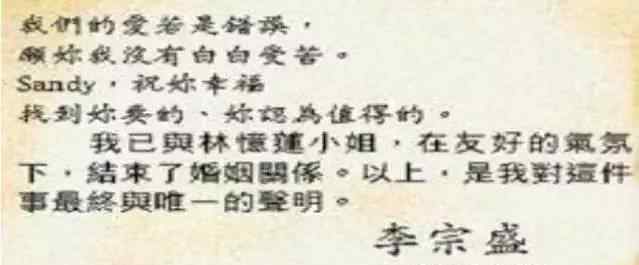 我們的愛若是錯誤，
願妳我沒有白白受苦。
Sandy，祝妳幸福
找到妳要的、妳認為值得的。
我已與林憶蓮小姐，在友好的氣氛
下，結束了婚姻關係。以上，是我對這件
事最終與唯一的聲明。
李宗盛